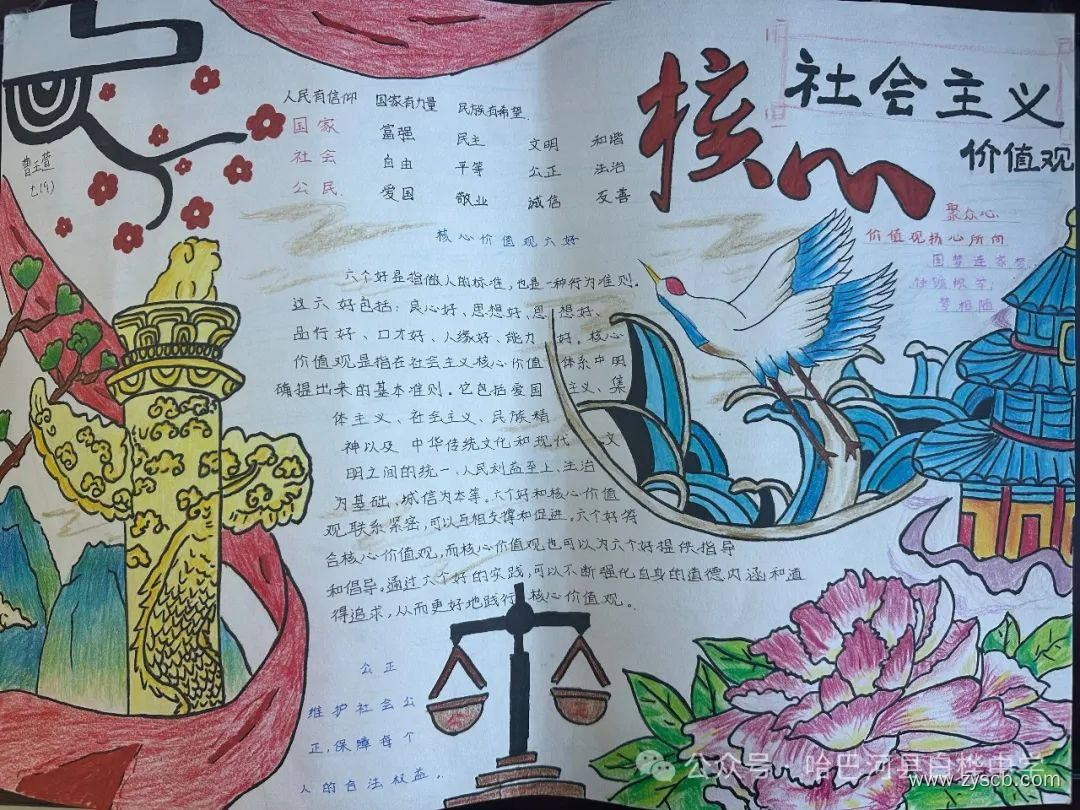 核心
社会主义
价值观
聚众心
价值观核心所向
国梦连家梦
梦相随
曹玉萱
七(9)
人民有信仰 国家有力量 民族有希望
国家 富强 民主 文明 和谐
社会 自由 平等 公正 法治
公民 爱国 敬业 诚信 友善
核心价值观六好
六个好是指做人的标准,也是一种行为准则。
这六好包括:良心好、思想好、思想好、
品行好、口才好、人缘好、能力好。核心
价值观是指在社会主义核心价值体系中明
确提出来的基本准则。它包括爱国主义、集
体主义、社会主义、民族精
神以及中华传统文化和现代文
明之间的统一、人民利益至上、法治
为基础,诚信为本等。六个好和核心价值
观联系紧密,可以互相支撑和促进。六个好符
合核心价值观,而核心价值观也可以为六个好提供指导
和倡导。通过六个好的实践,可以不断强化自身的道德内涵和道
得追求,从而更好地践行核心价值观。
公正
维护社会公
正,保障每个
人的合法权益。
公众号·哈巴河县白桦中学
www.zyscb.com